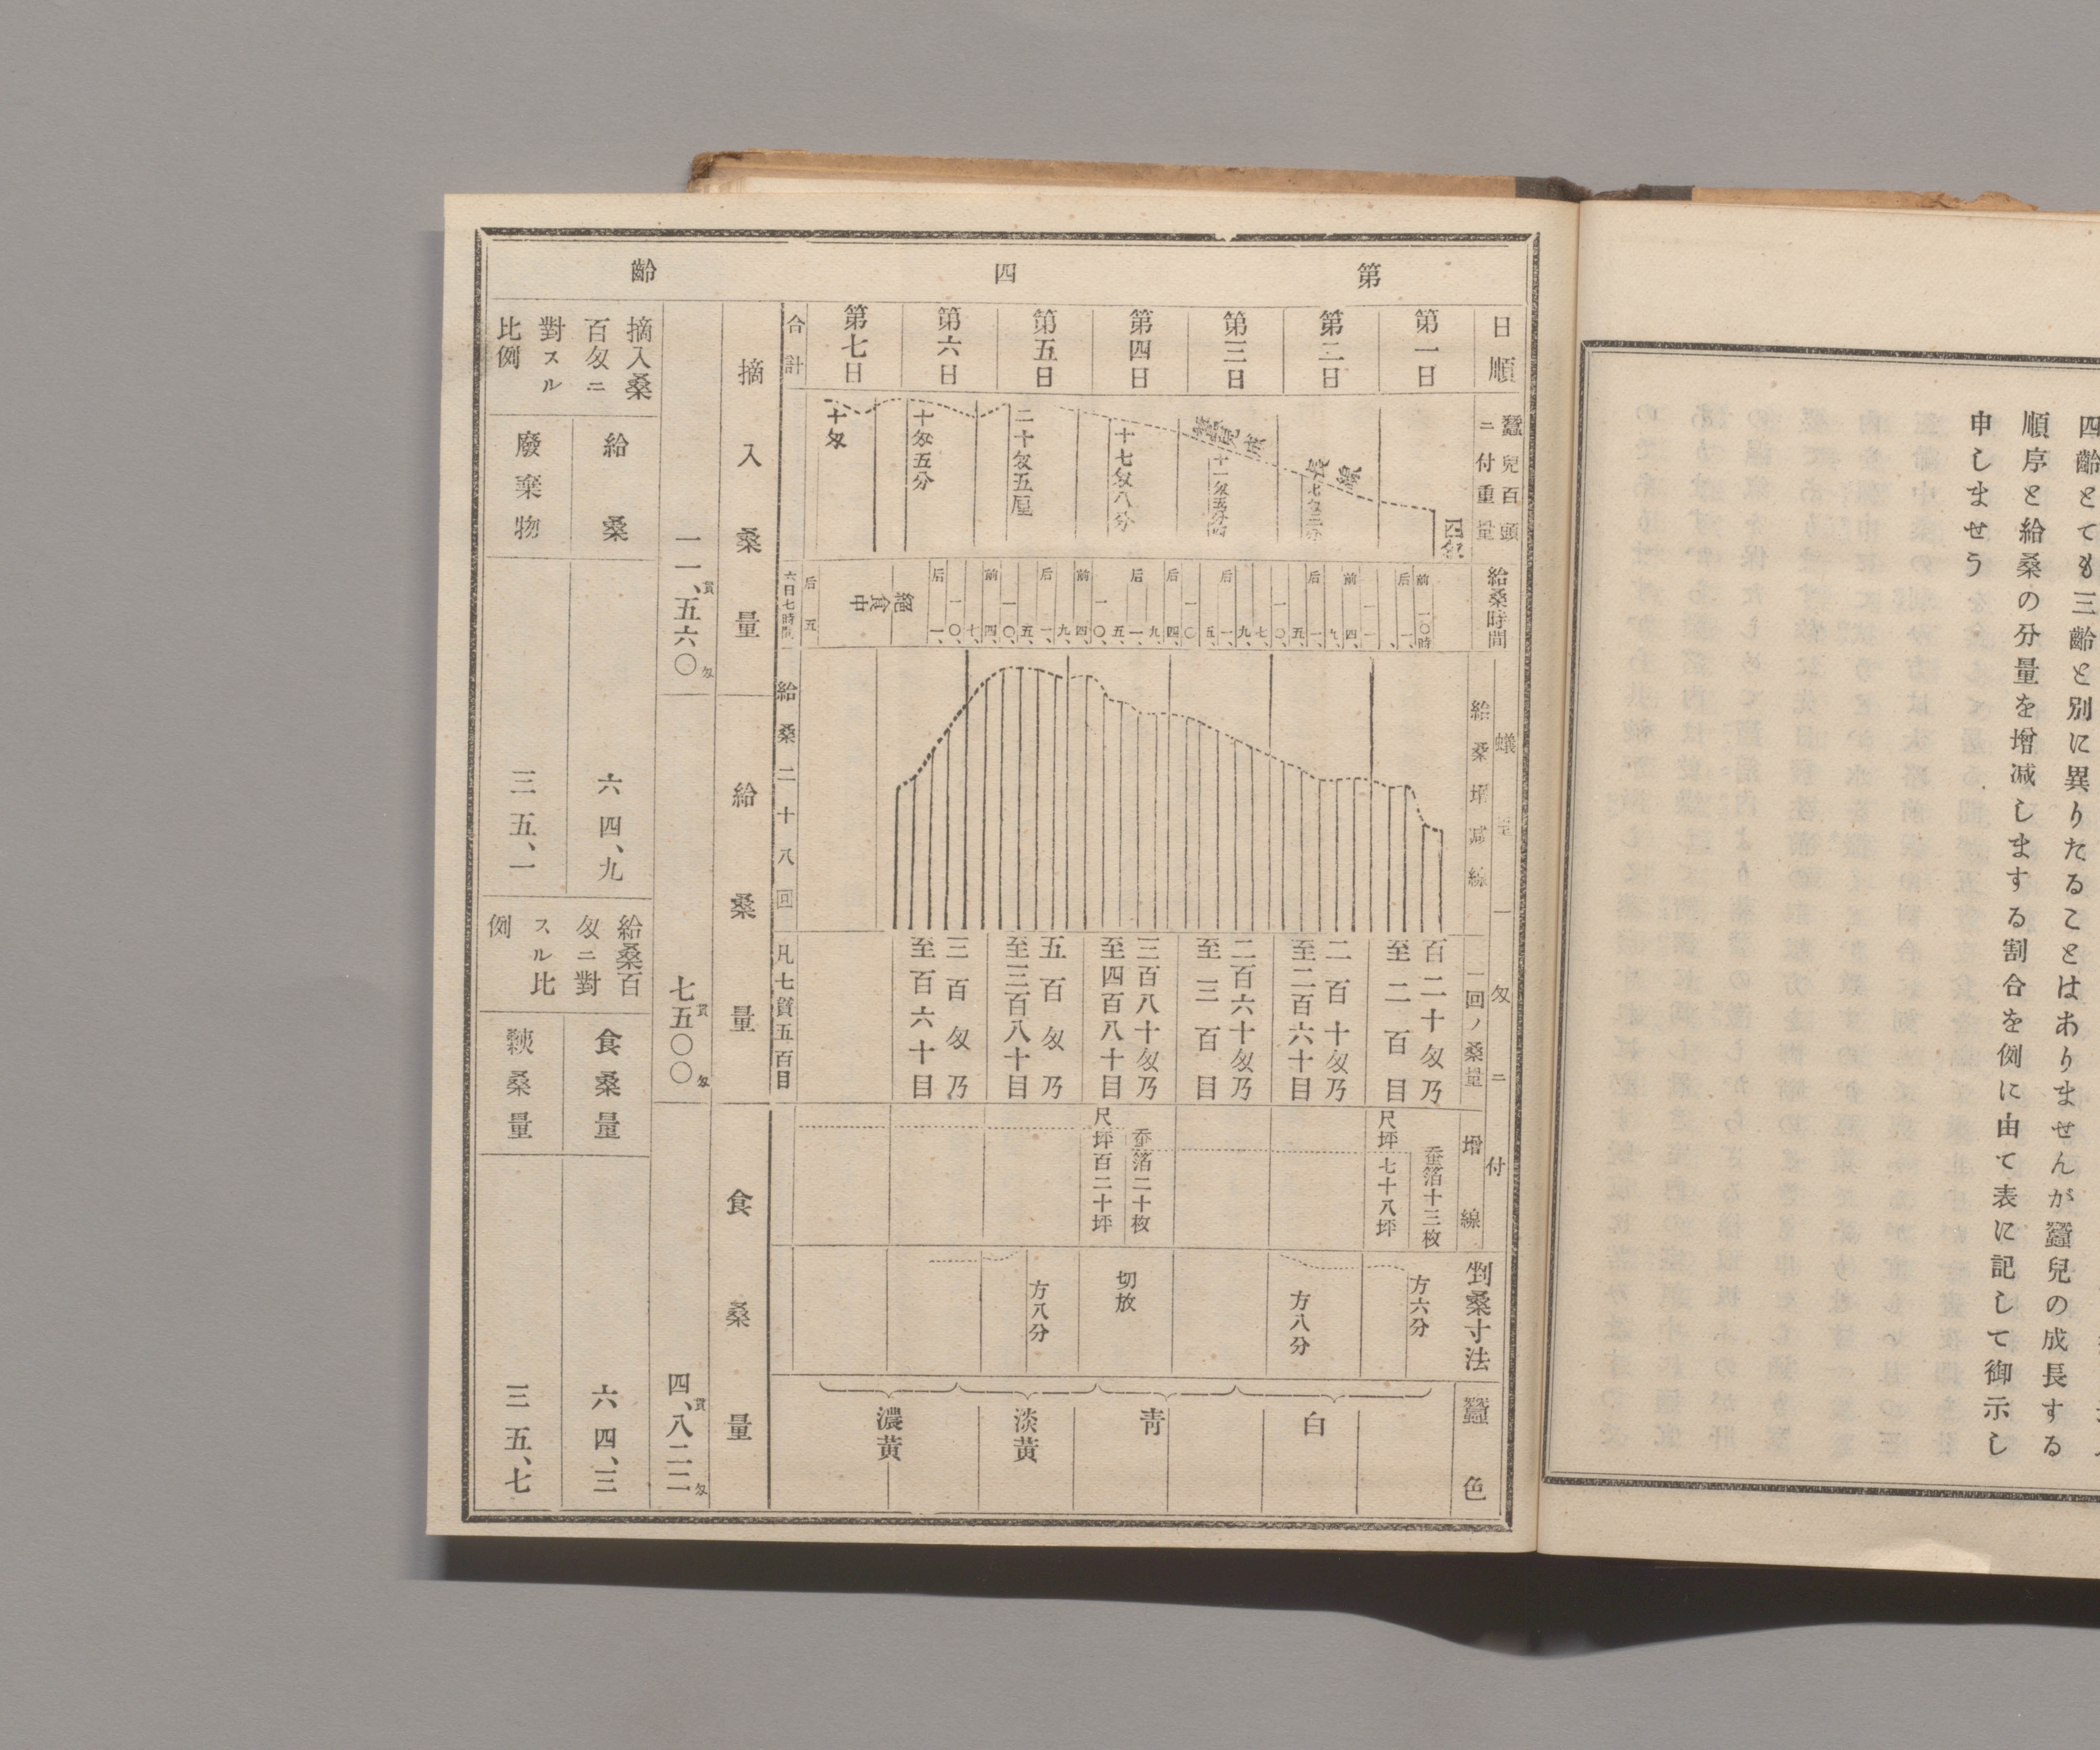 四齡とても三齡と別に異りたることはありませんが蠶兒の成長する
順序と給桑の分量を增減しまする割合を例に由て表に記して御示し
申しませう
第四齡
日順
第一日
第二日
第三日
第四日
第五日
第六日
第七日
合計
蠶兒百頭
ニ付重量
四匁
十七匁八分
二十匁五厘
十匁五分
十匁
成長線
給桑時間
絕食中
六日七時間
蟻量一匁ニ付
給桑增減線
給桑二十八回
一回ノ桑量
百二十匁乃
至二百目
二百十匁乃
至二百六十目
二百六十匁乃
至三百目
三百八十匁乃
至四百八十目
五百匁乃
至三百八十目
三百匁乃
至百六十目
凡七貫五百目
增線
蚕箔十三枚
尺坪七十八坪
蚕箔二十枚
尺坪百二十坪
剉桑寸法
方六分
方八分
切放
方八分
蠶色
白
靑
淡黃
濃黃
摘入桑量
給桑量
食桑量
一一、貫五六〇匁
七貫五〇〇匁
四、貫八二二匁
摘入桑
百匁ニ
對スル
比例
給桑
廢棄物
六四、九
三五、一
給桑百
匁ニ對
スル比
例
食桑量
殘桑量
六四、三
三五、七